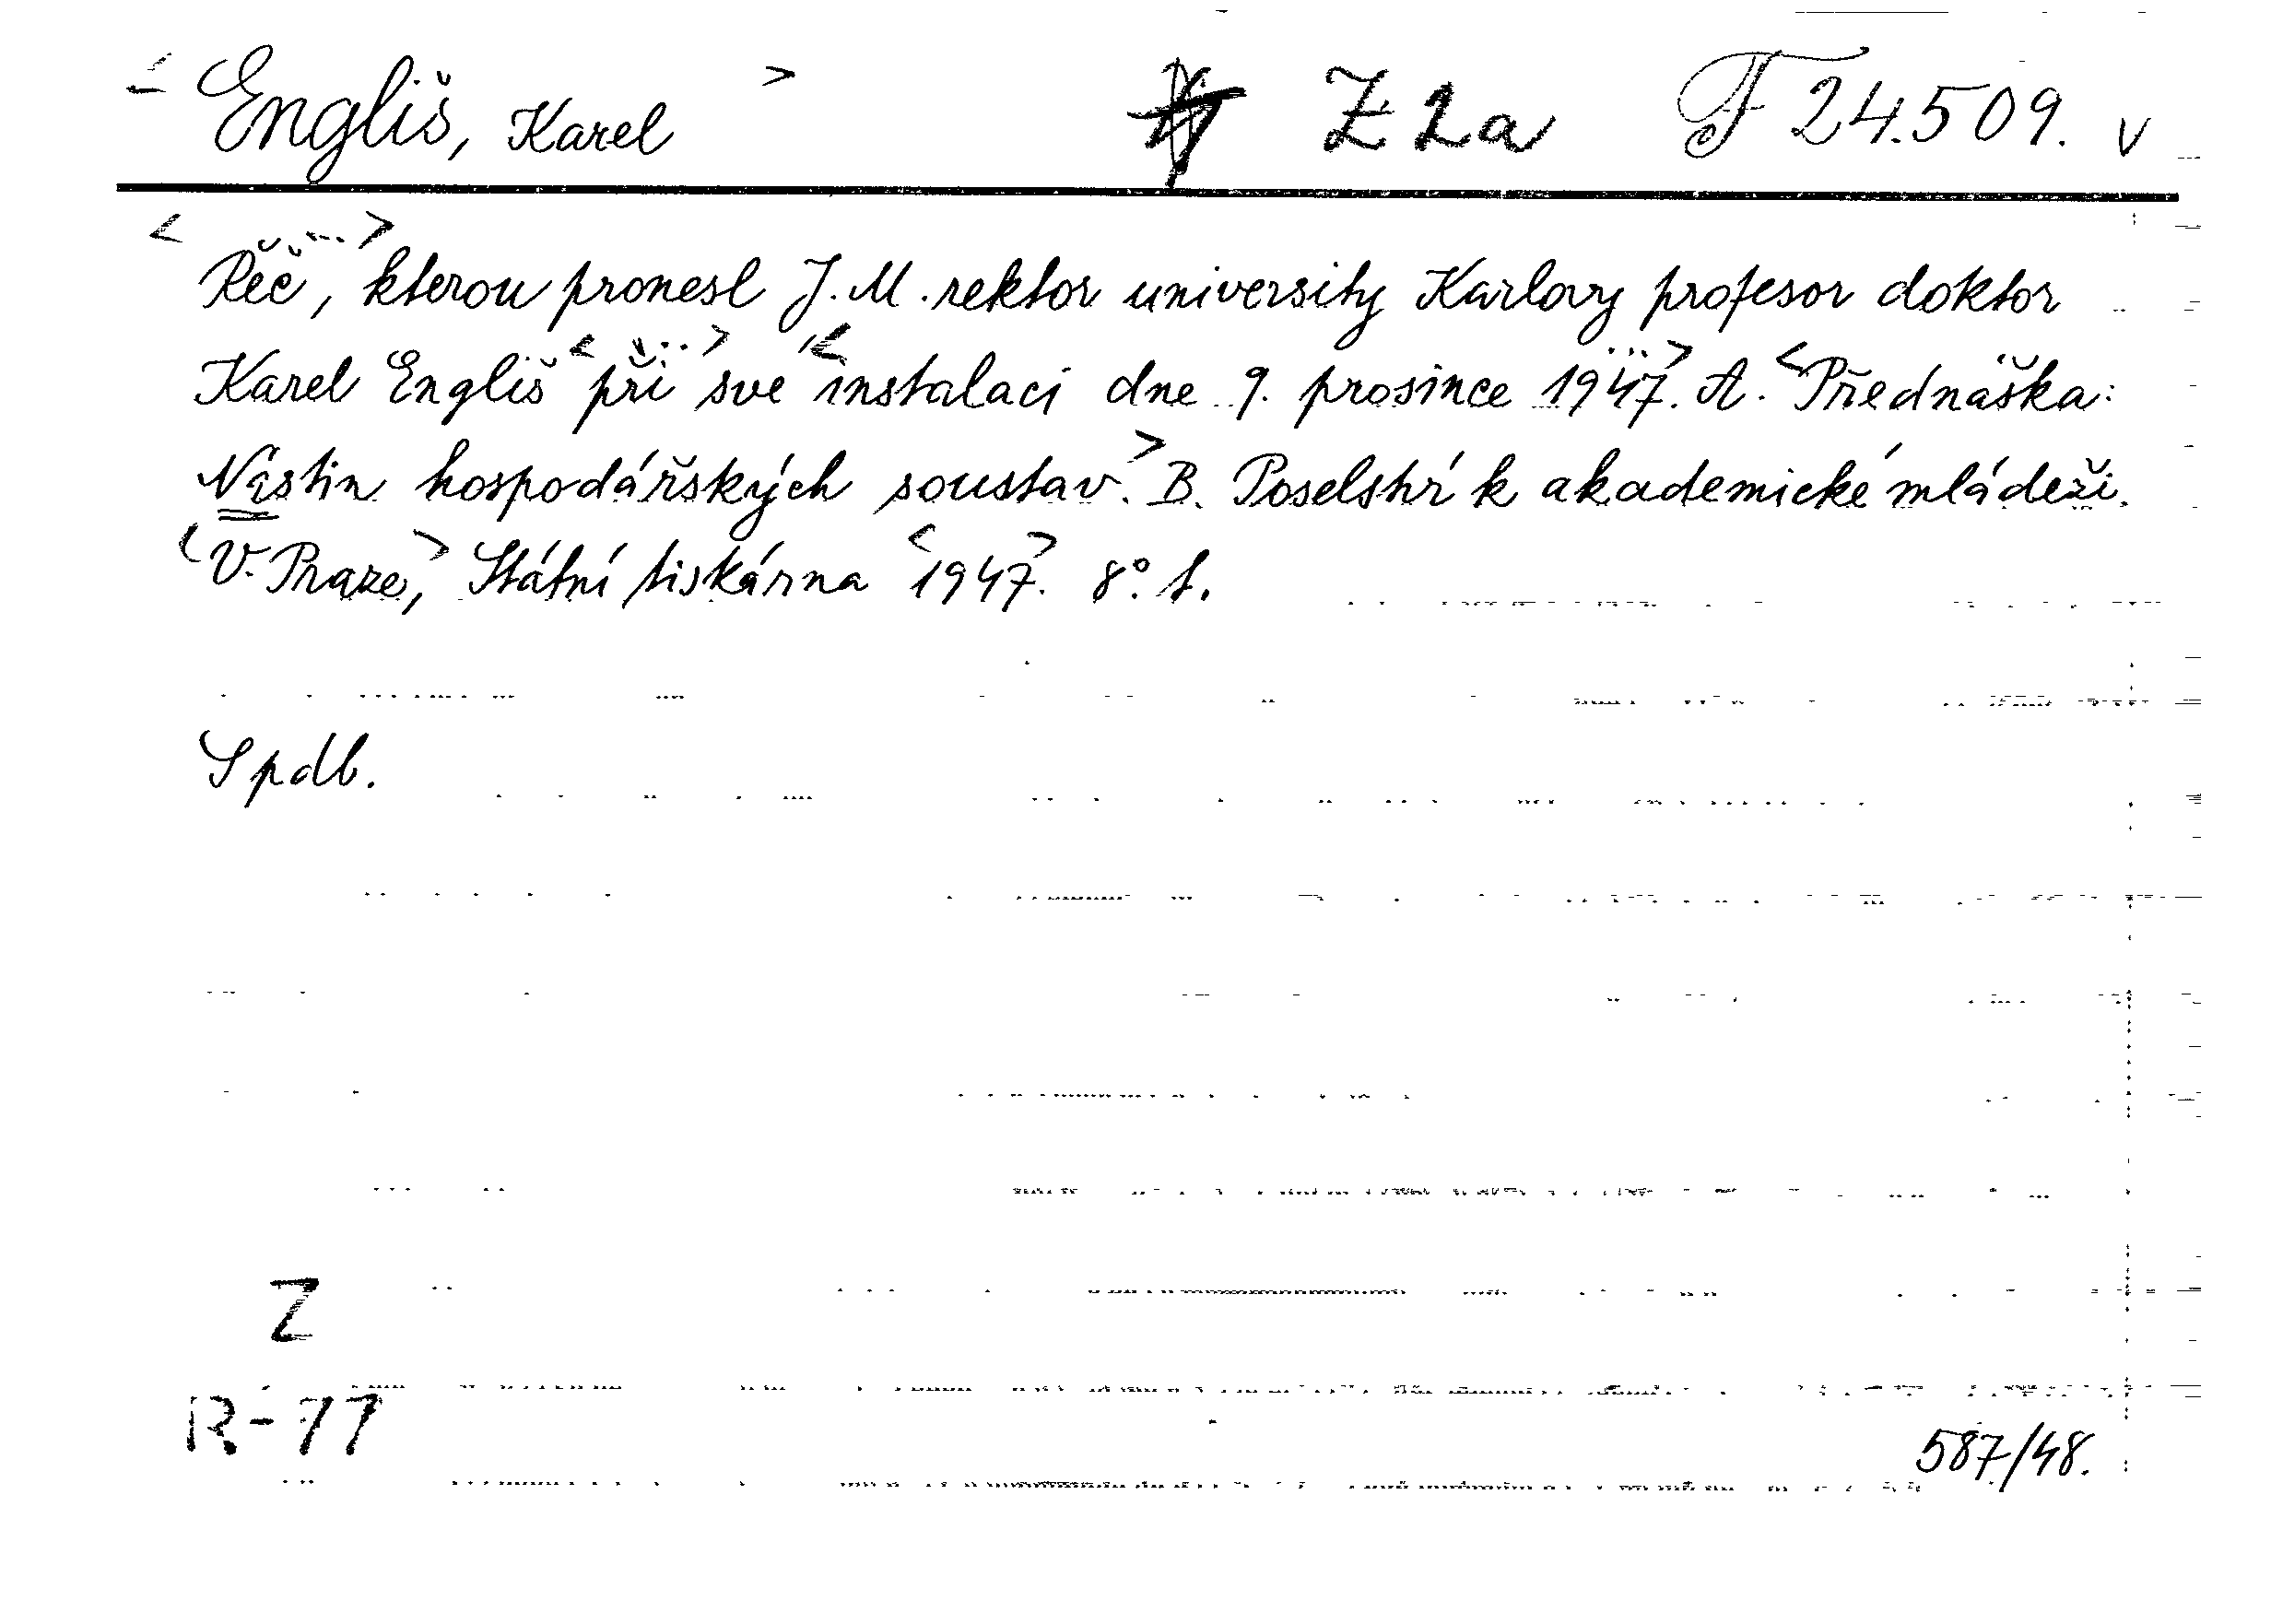 Engliš, Karel Z 2a F 24.509. v
Řeč, kterou pronesl J. M. rektor university Karlovy profesor doktor
Karel Engliš při své instalaci dne 9. prosince 1947. A. Přednáška:
Nástin hospodářských soustav. B. Poselství k akademické mládeži.
V Praze, Státní tiskárna 1947. 8°.
Spdb.
Z
R-77
587/48.